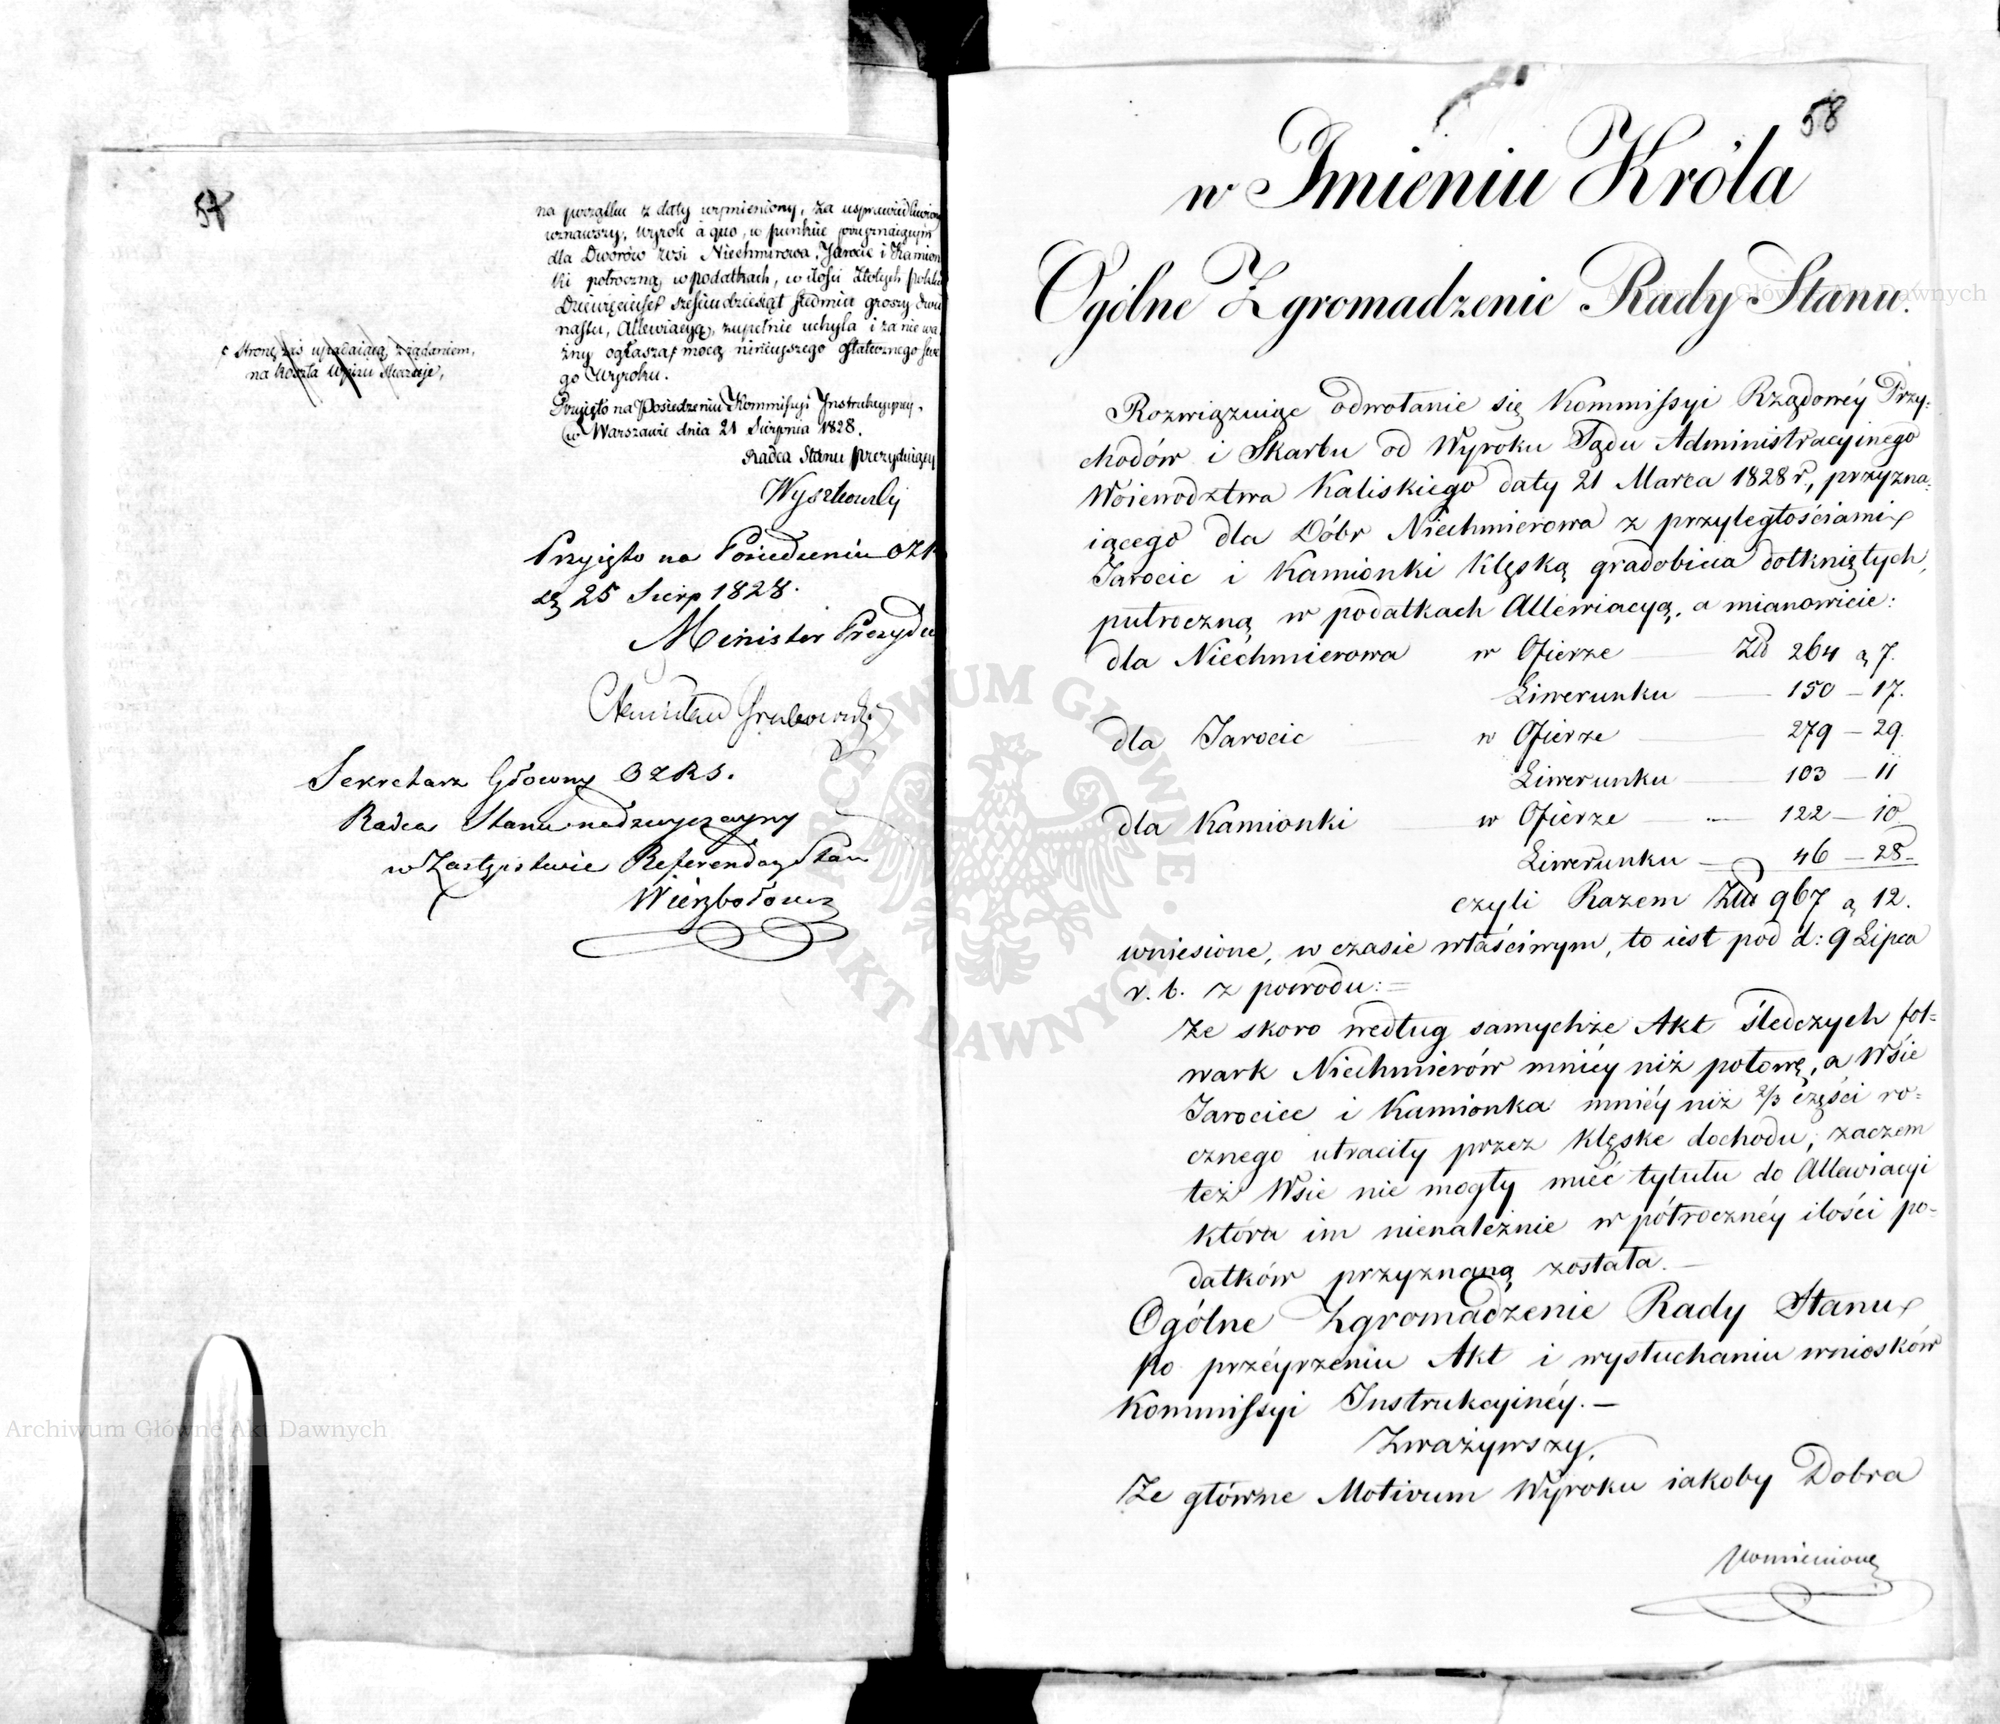 57
na porządku z daty wymieniony, za usprawiedliwiony
uznawszy, wyrok à quo, w punkcie przyznaiącym
dla Dworów wsi Niechmirowa, Jarocic i Kamion
ki półroczną w podatkach, w ilości złotych polskich
Dziewięćset sześćdziesiąt siedmiu groszy dwu
nastu, Allewiacyą, zupełnie uchyla i za nie wa
żny ogłasza, mocą ninieyszego ostatecznego swe
go Wyroku.
Stronę zaś upadaiącą z żądaniem,
na koszta Wpisu skazuje,
Przyięto na Posiedzeniu Kommissyi Instrukcyiney,
w Warszawie dnia 21 Sierpnia 1828.
Radca Stanu Prezyduiący
Wyszkowski
Przyięto na Posiedzeniu OZR
dą 25 Sierp 1828.
Minister Prezydu
Stanisław Grabowski
Sekretarz Główny OZRS.
Radca Stanu nadzwyczayny
w Zastępstwie Referendarz Stanu
Wierzbołowicz
58
w Imieniu Króla
Ogólne Zgromadzenie Rady Stanu.
Rozwiązuiąc odwołanie się Kommissyi Rządowéy Przy-
chodów i Skarbu od Wyroku Sądu Administracyinego
Wóiewodztwa Kaliskiego daty 21 Marca 1828 r., przyzna-
iącego dla Dóbr Niechmierowa z przyległościami
Jarocic i Kamionki klęską gradobicia dotkniętych,
pułroczną w podatkach Allewiacyą, a mianowicie:
dla Niechmierowa w Ofierze Złt 264 g 7.
Liwerunku 150 – 17.
dla Jarocic w Ofierze 279 – 29.
Liwerunku 103 – 11
dla Kamionki w Ofierze 122 – 10
Liwerunku 46 – 28 –
czyli Razem Złt 967 g 12.
wniesione, w czasie właściwym, to iest pod d: 9 Lipca
r. b. z powodu: =
że skoro według samychże Akt śledczych fol-
wark Niechmierów mniéy niż połowę, a Wsie
Jarocice i Kamionka mniéy niż 2/3 części ro-
cznego utraciły przez klęskę dochodu, zaczem
też Wsie nie mogły mieć tytułu do Allewiacyi
która im nienależnie w półrocznéy ilości po-
datków przyznaną została. –
Ogólne Zgromadzenie Rady Stanu
po przéyrzeniu Akt i wysłuchaniu wniosków
Kommissyi Instrukcyinéy. –
Zważywszy,
Że główne Motivum Wyroku iakoby Dobra
pomienione
Archiwum Główne Akt Dawnych
Archiwum Główne Akt Dawnych
ARCHIWUM GŁÓWNE AKT DAWNYCH